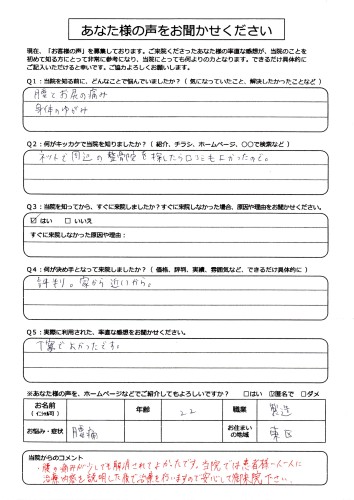 あなた様の声をお聞かせください
現在、「お客様の声」を募集しております。ご来院くださったあなた様の率直な感想が、当院のことを
初めて知る方にとって非常に参考になり、当院にとっても何よりの力となります。できるだけ具体的に
ご記入いただけると幸いです。ご協力よろしくお願いします。
Q1：当院を知る前に、どんなことで悩んでいましたか？（気になっていたこと、解決したかったことなど）
腰とお尻の痛み
身体のゆがみ
Q2：何がキッカケで当院を知りましたか？（紹介、チラシ、ホームページ、〇〇で検索など）
ネットで周辺の整骨院を探したら口コミもよかったので。
Q3：当院を知ってから、すぐに来院しましたか？すぐに来院しなかった場合、原因や理由をお聞かせください。
☑はい　□いいえ
すぐに来院しなかった原因や理由：
Q4：何が決め手となって来院しましたか？（価格、評判、実績、雰囲気など、できるだけ具体的に）
評判。家から近いから。
Q5：実際に利用された、率直な感想をお聞かせください。
丁寧でよかったです。
※あなた様の声を、ホームページなどでご紹介してもよろしいですか？　□はい ☑匿名で □ダメ
お名前 年齢 22 職業 製造
(イニシャル可)
お悩み・症状 腰痛 お住まいの地域 東区
当院からのコメント
・腰の痛みが少しでも解消されてよかったです。当院では患者様一人一人に
治療内容を説明した後で治療を行いますので安心して御来院下さい。